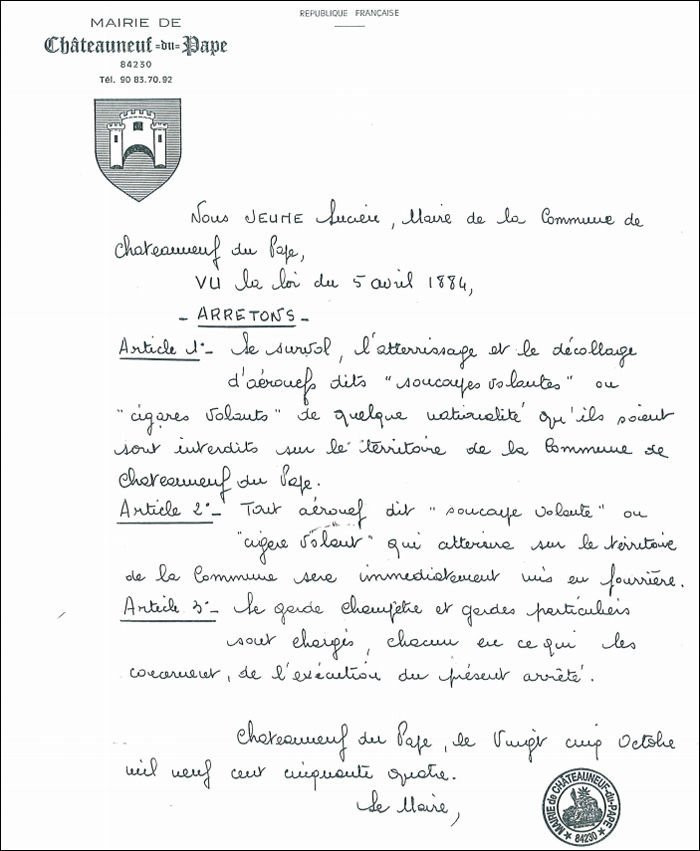 REPUBLIQUE FRANÇAISE
MAIRIE DE
Châteauneuf-du-Pape
84230
Tél. 90 83.70.92
Nous JEUNE Lucien, Maire de la Commune de
Chateauneuf du Pape,
VU la loi du 5 avril 1884,
- ARRETONS -
Article 1°- Le survol, l'atterrissage et le décollage
d'aéronefs dits "soucoupes volantes" ou
"cigares volants" de quelque nationalité qu'ils soient
sont interdits sur le territoire de la Commune de
Chateauneuf du Pape.
Article 2°- Tout aéronef dit "soucoupe volante" ou
"cigare volant" qui atterrira sur le territoire
de la Commune sera immédiatement mis en fourrière.
Article 3°- Le garde champêtre et gardes particuliers
sont chargés, chacun en ce qui les
concernent, de l'exécution du présent arrêté.
Chateauneuf du Pape, le Vingt cinq Octobre
mil neuf cent cinquante quatre.
Le Maire,
MAIRIE de CHÂTEAUNEUF-du-PAPE
84230